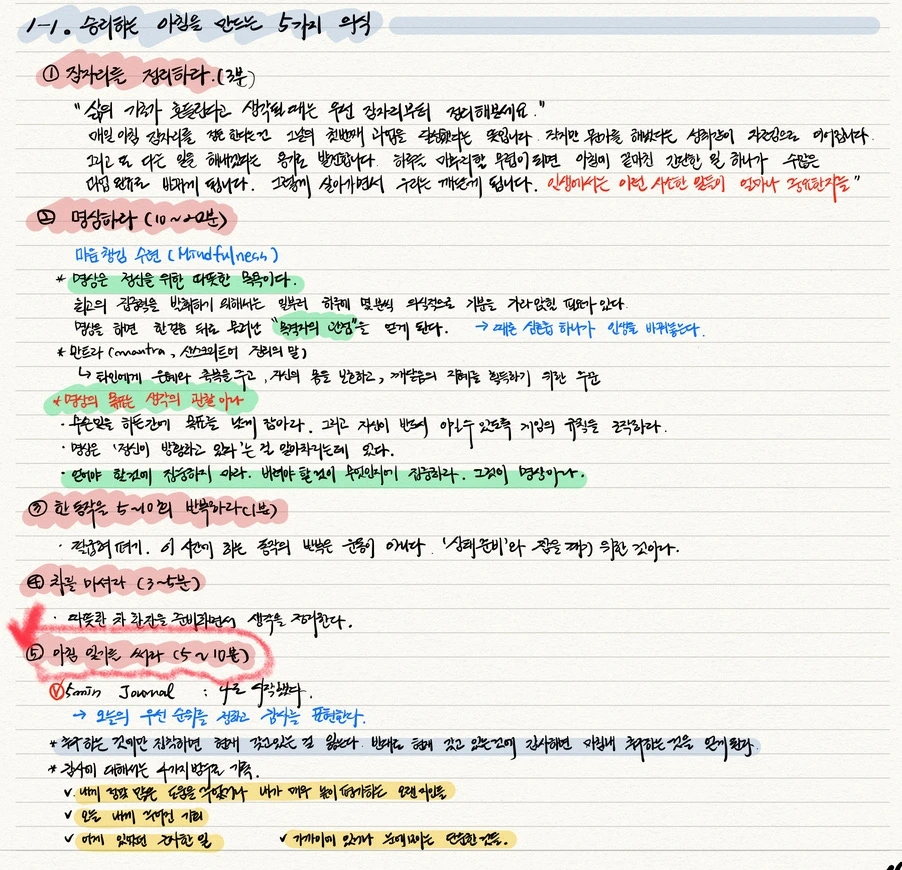 1-1. 승리하는 아침을 만드는 5가지 의식
① 잠자리를 정리하라. (3분)
"삶의 기로가 흔들린다고 생각될 때는 우선 잠자리부터 정리해보세요."
매일 아침 잠자리를 정돈한다는건 그날의 첫번째 과업을 달성했다는 뜻입니다. 작지만 뭔가를 해냈다는 성취감이 자존감으로 이어집니다.
그리고 또 다른 일을 해내겠다는 용기로 발전합니다. 하루를 마무리할 무렵이 되면 아침에 끝마친 간단한 일 하나가 수많은
과업 완료로 바뀌게 됩니다. 그렇게 살아가면서 우리는 깨닫게 됩니다. 인생에서는 이런 사소한 일들이 얼마나 중요한지를"
② 명상하라 (10~20분)
마음챙김 수련 (Mindfulness)
* 명상은 정신을 위한 따뜻한 목욕이다.
최고의 집중력을 발휘하기 위해서는 일부러 하루에 몇분씩 의식적으로 기분을 가라앉힐 필요가 있다.
명상을 하면 한걸음 뒤로 물러난 "목격자의 관점"을 얻게 된다. → 때론 심호흡 하나가 인생을 바꿔놓는다.
* 만트라 (mantra, 산스크리트어 진리의 말)
↳ 타인에게 은혜와 축복을 주고, 자신의 몸을 보호하고, 깨달음의 지혜를 획득하기 위한 주문
* 명상의 목표는 생각의 관찰이다
· 수손민을 하는 간에 목표를 낮게 잡아라. 그리고 자신이 반드시 이길수 있도록 게임의 규칙을 조작하라.
· 명상은 '정신이 방황하고 있다'는 걸 알아차리는데에 있다.
· 얻어야 할것에 집중하지 마라. 버려야 할것이 무엇인지에 집중하라. 그것이 명상이다.
③ 한 동작을 5~10회 반복하라 (1분)
· 팔굽혀 펴기. 이 시간에 하는 동작의 반복은 운동이 아니다. '상태 준비'와 잠을 깨기 위한 것이다.
④ 차를 마셔라 (3~5분)
· 따뜻한 차 한잔을 준비하면서 생각을 정리한다.
⑤ 아침 일기를 써라 (5~10분)
ⓥ 5min Journal : 4로 시작했다.
→ 오늘의 우선 순위를 정하고 감사를 표현한다.
* 추구하는 것에만 집착하면 현재 갖고있는 걸 잃는다. 반대로 현재 갖고 있는것에 감사하면 마침내 추구하는 것을 얻게된다.
* 감사에 대해서는 4가지 범주로 기록.
✓. 내게 정말 많은 도움을 주었거나 내가 매우 높이 평가하는 오랜 지인들
✓ 오늘 내게 주어진 기회
✓ 어제 있었던 근사한 일 ✓ 가까이에 있거나 눈에 보이는 단순한 것들.